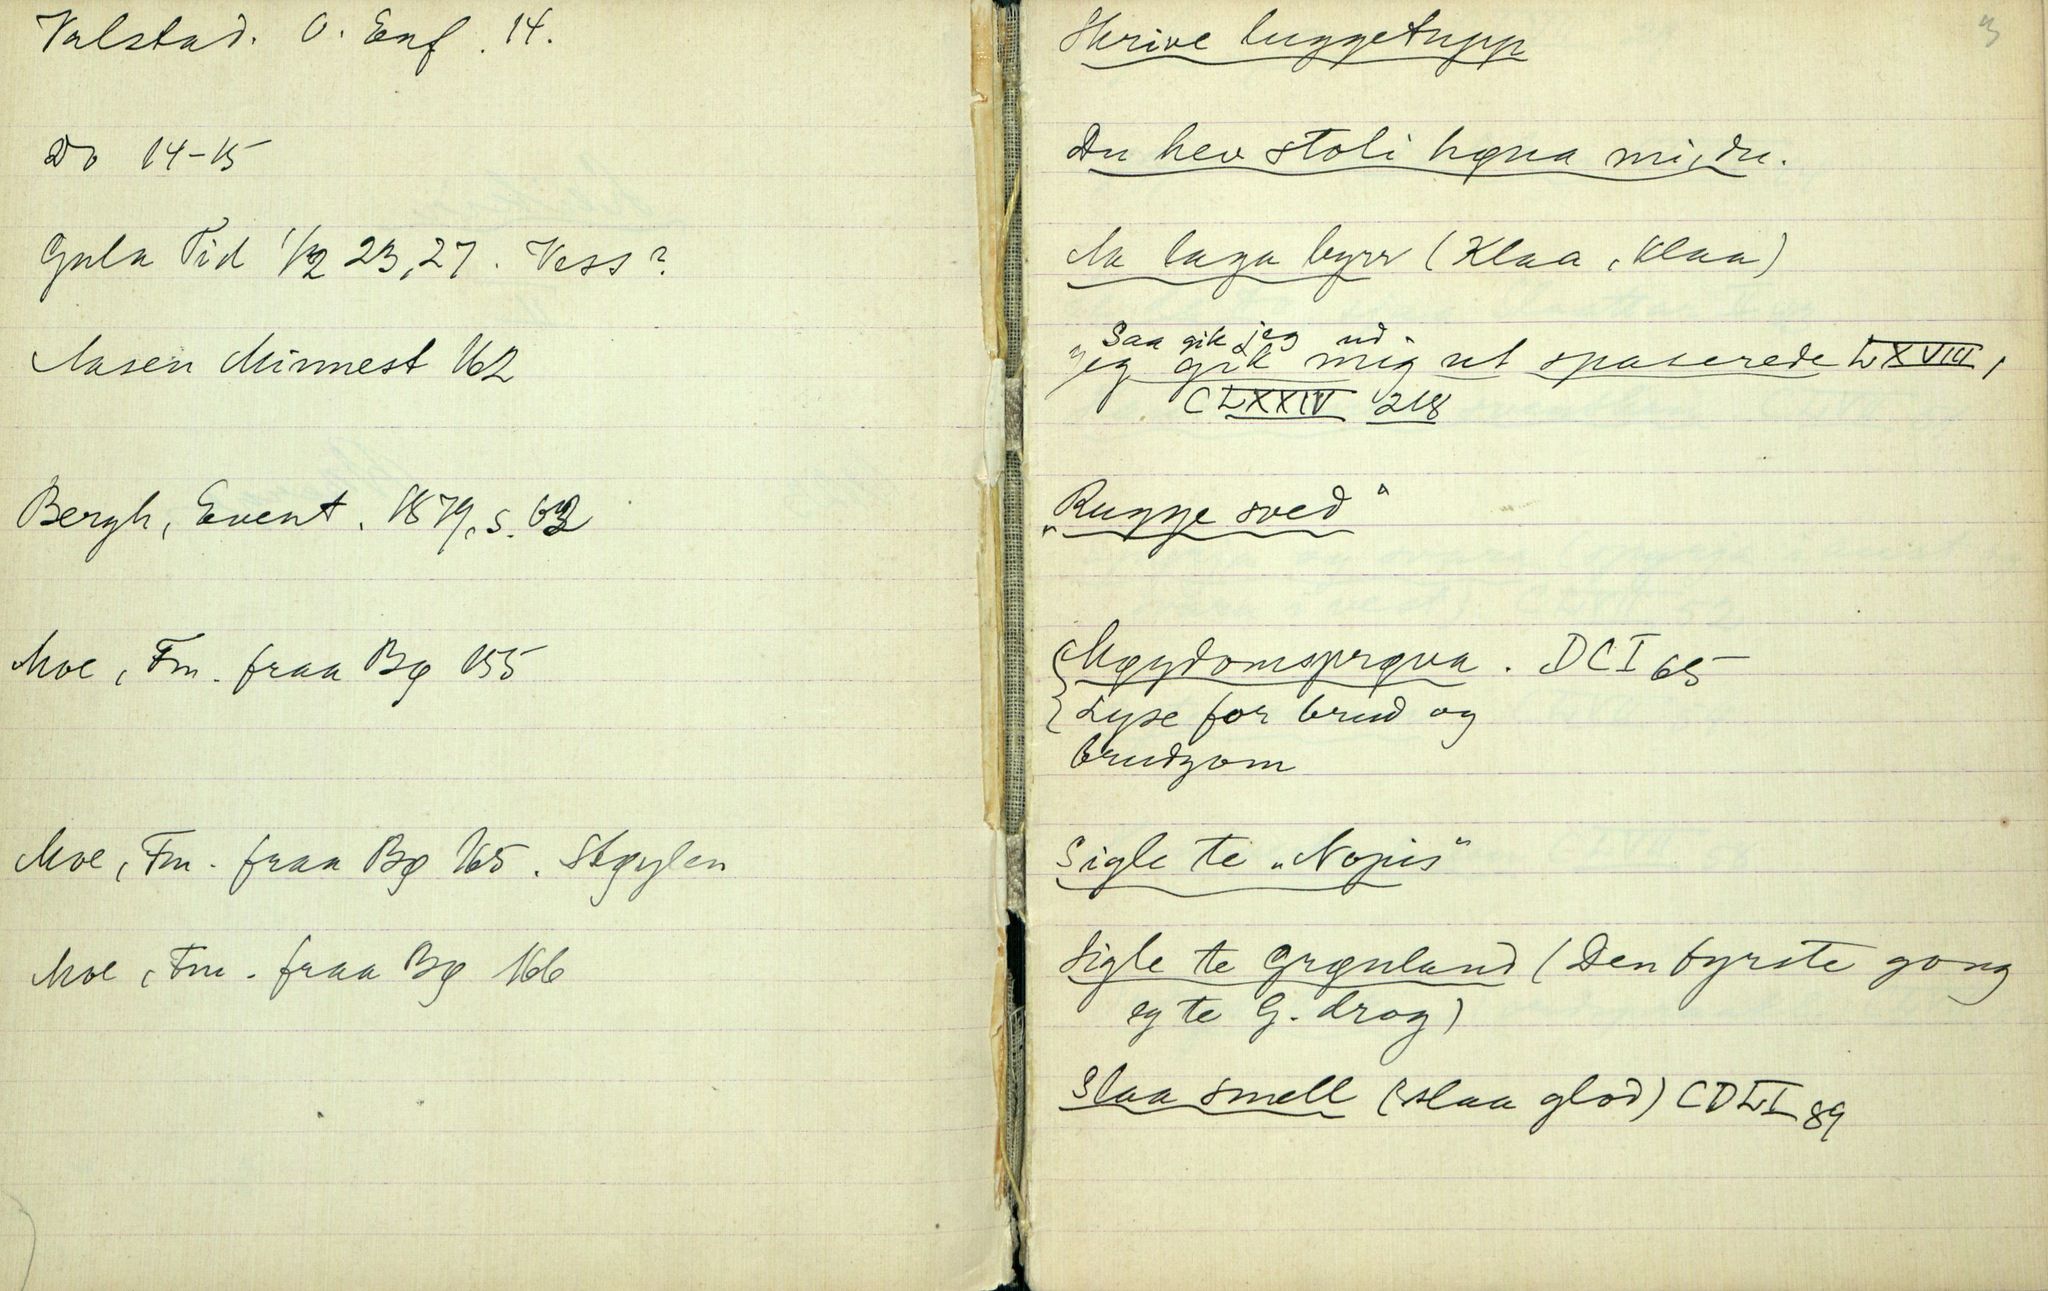 Valstad. O. Enf. 14.
Do 14-15
Gula Tid 1/12 23, 27. Voss?
Aasen Minnest 162
Bergh, Event. 1879, s. 63
Moe, Fm. fraa Bø 155
Moe, Fm. fraa Bø 165. Støylen
Moe, Fm. fraa Bø 166
3
Skrive luggetupp
Du hev stoli høna mi, du.
Aa laga byrr (Klaa, klaa)
Saa gik jeg ud
Jeg gik mig ut spaserede LXVIII,
CLXXIV 218
"Rugge sved"
Møydomsprøva. DCI 65
Lyse for brud og
brudgom
Sigle te "Nopis"
Sigle te Grønland (Den fyrste gong
eg te G. drog)
Slaa smell (slaa glod) CDLI 89